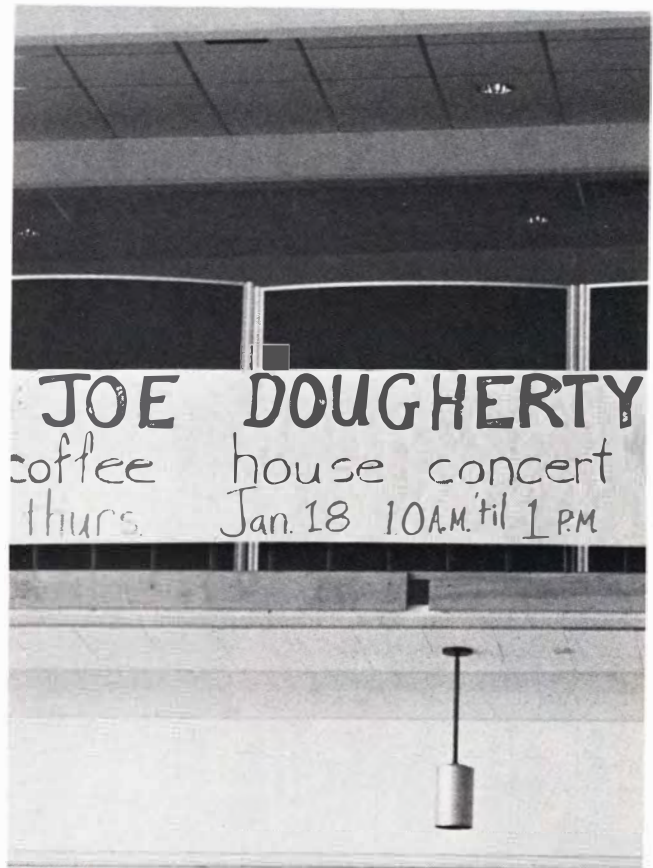 JOE DOUGHERTY
coffee house concert
thurs. Jan. 18 10 A.M. 'til 1 P.M